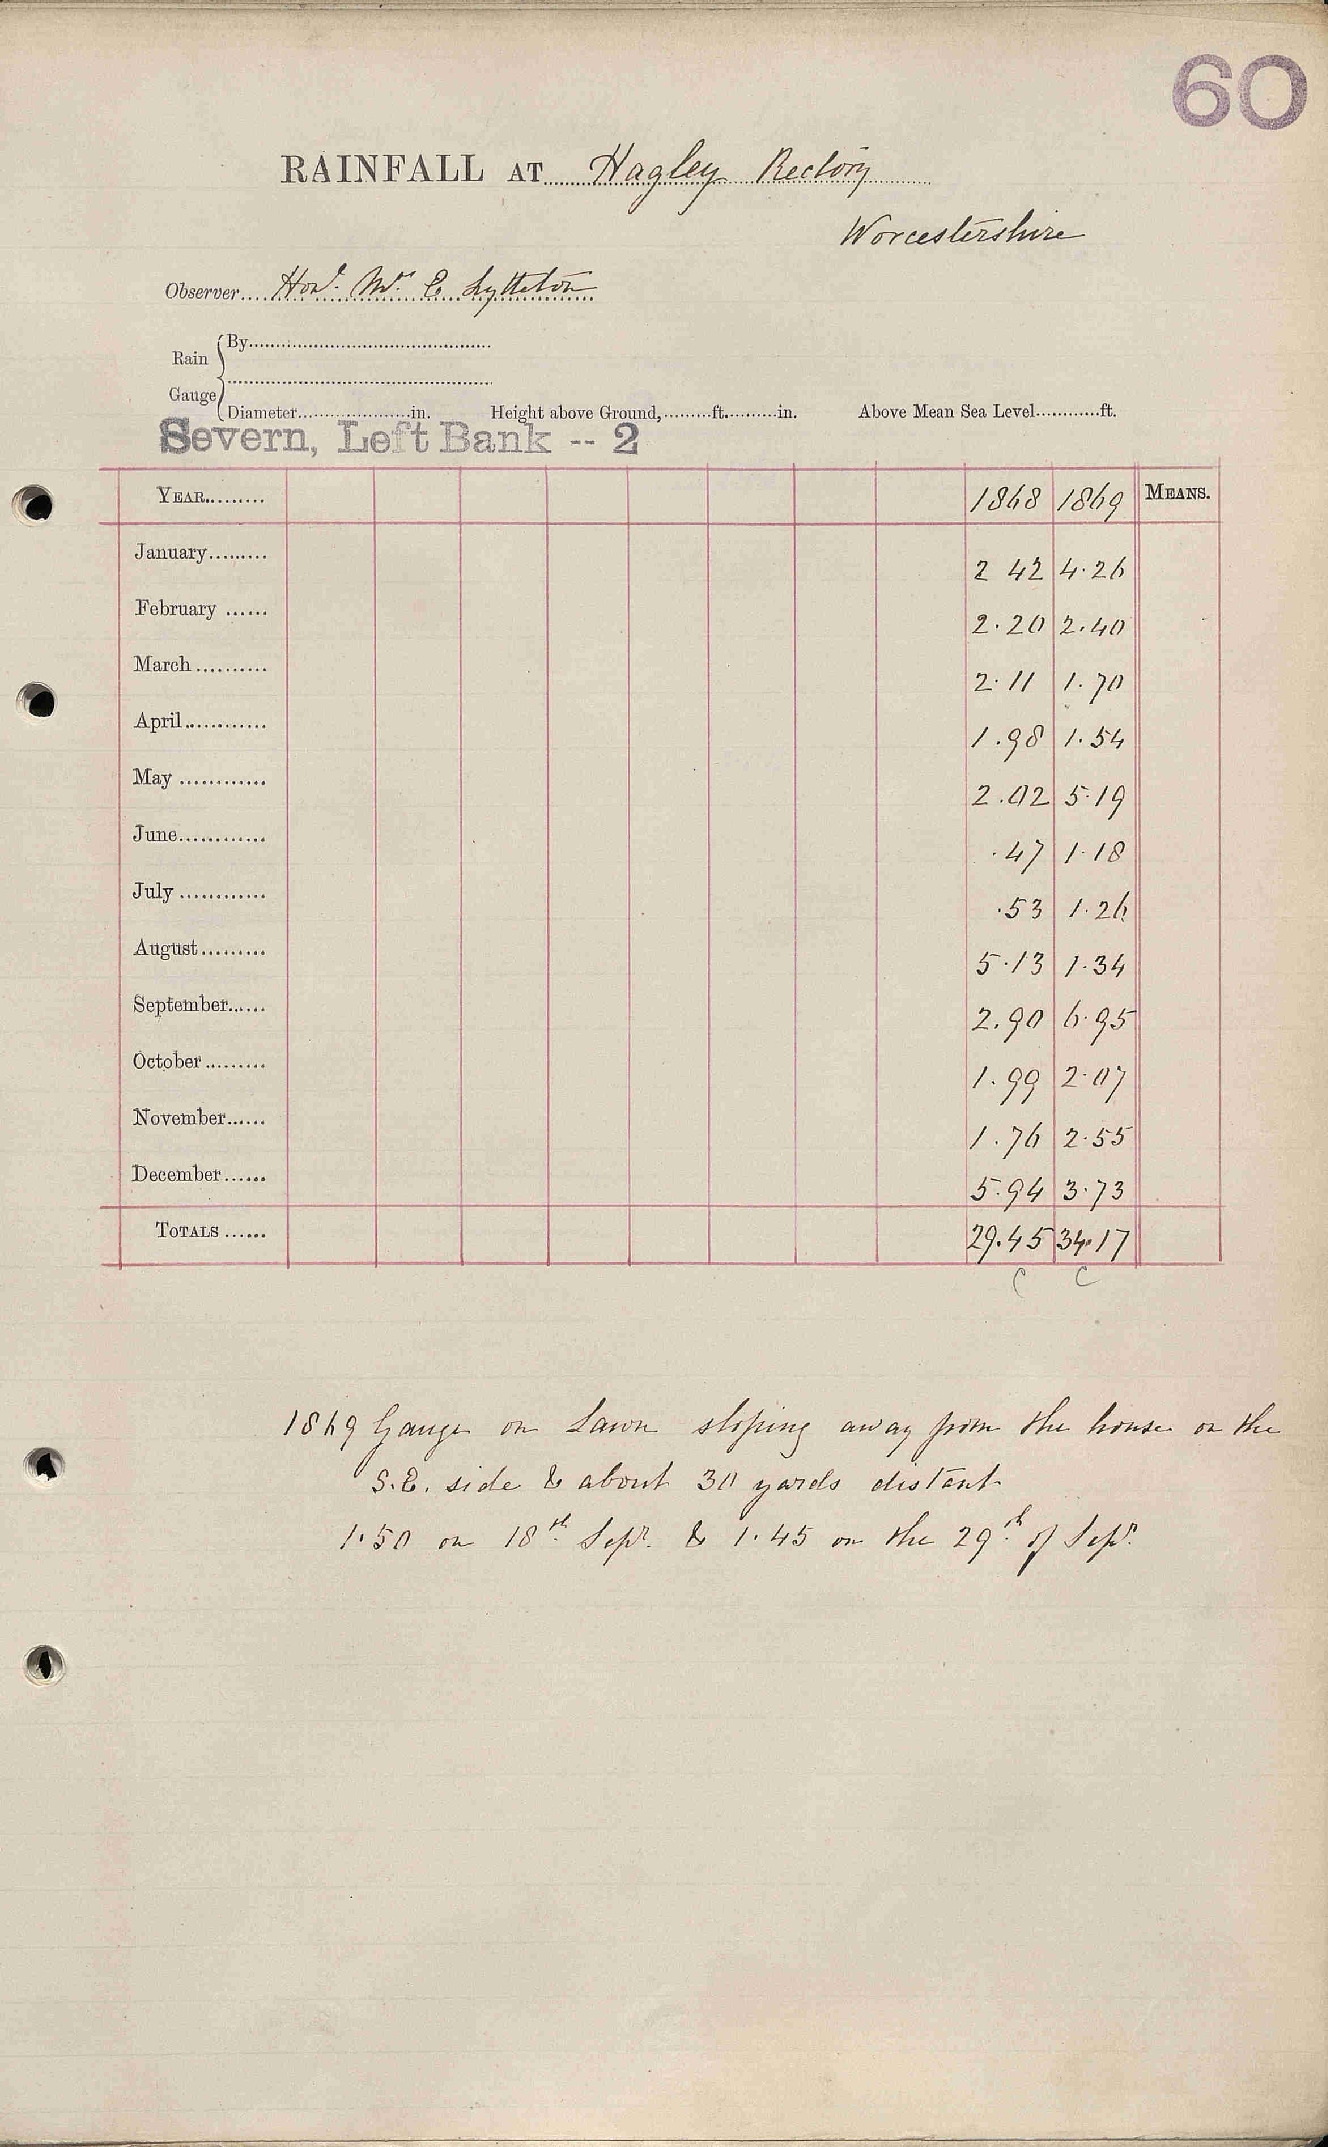 60
RAINFALL AT Hagley Rectory
Worcestershire
Observer Honl. Mr. E Lyttelton
Rain Gauge By
Diameter in. Height above Ground, ft. in. Above Mean Sea Level ft.
Severn, Left Bank -- 2
YEAR 1868 1869 MEANS.
January 2 42 4.26
February 2.20 2.40
March 2.11 1.70
April 1.98 1.54
May 2.02 5.19
June .47 1.18
July .53 1.26
August 5.13 1.34
September 2.90 6.95
October 1.99 2.07
November 1.76 2.55
December 5.94 3.73
TOTALS 29.45 34.17
c c
1869 Gauge on Lawn sloping away from the house on the
S.E. side & about 30 yards distant
1.50 on 18th Sepr. & 1.45 on the 29th of Sepr.